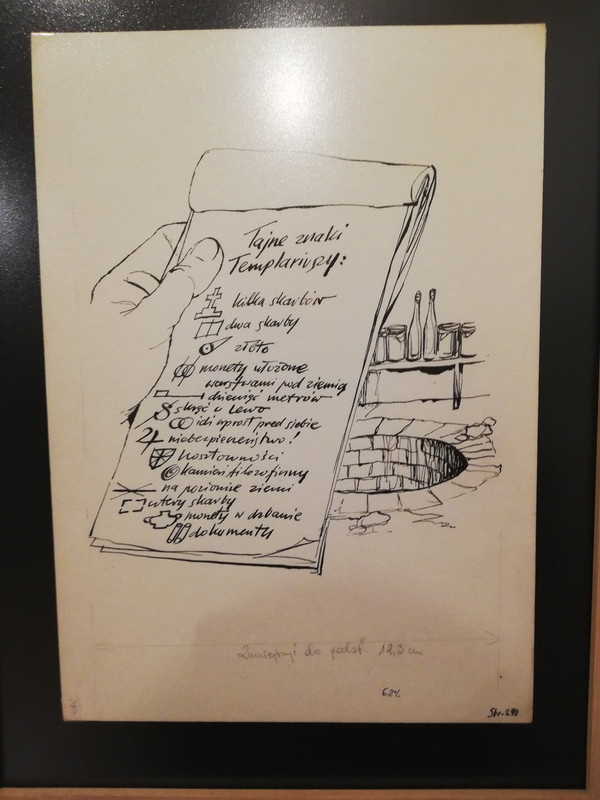 Tajne znaki
Templariuszy:
kilka skarbów
dwa skarby
złoto
monety ułożone
warstwami pod ziemią
dziewięć metrów
skręć w lewo
idź wprost przed siebie
niebezpieczeństwo!
kosztowności
kamień filozoficzny
na poziomie ziemi
cztery skarby
monety w dzbanie
dokumenty
Zmniejszyć do 12,3 cm
62%
Str.